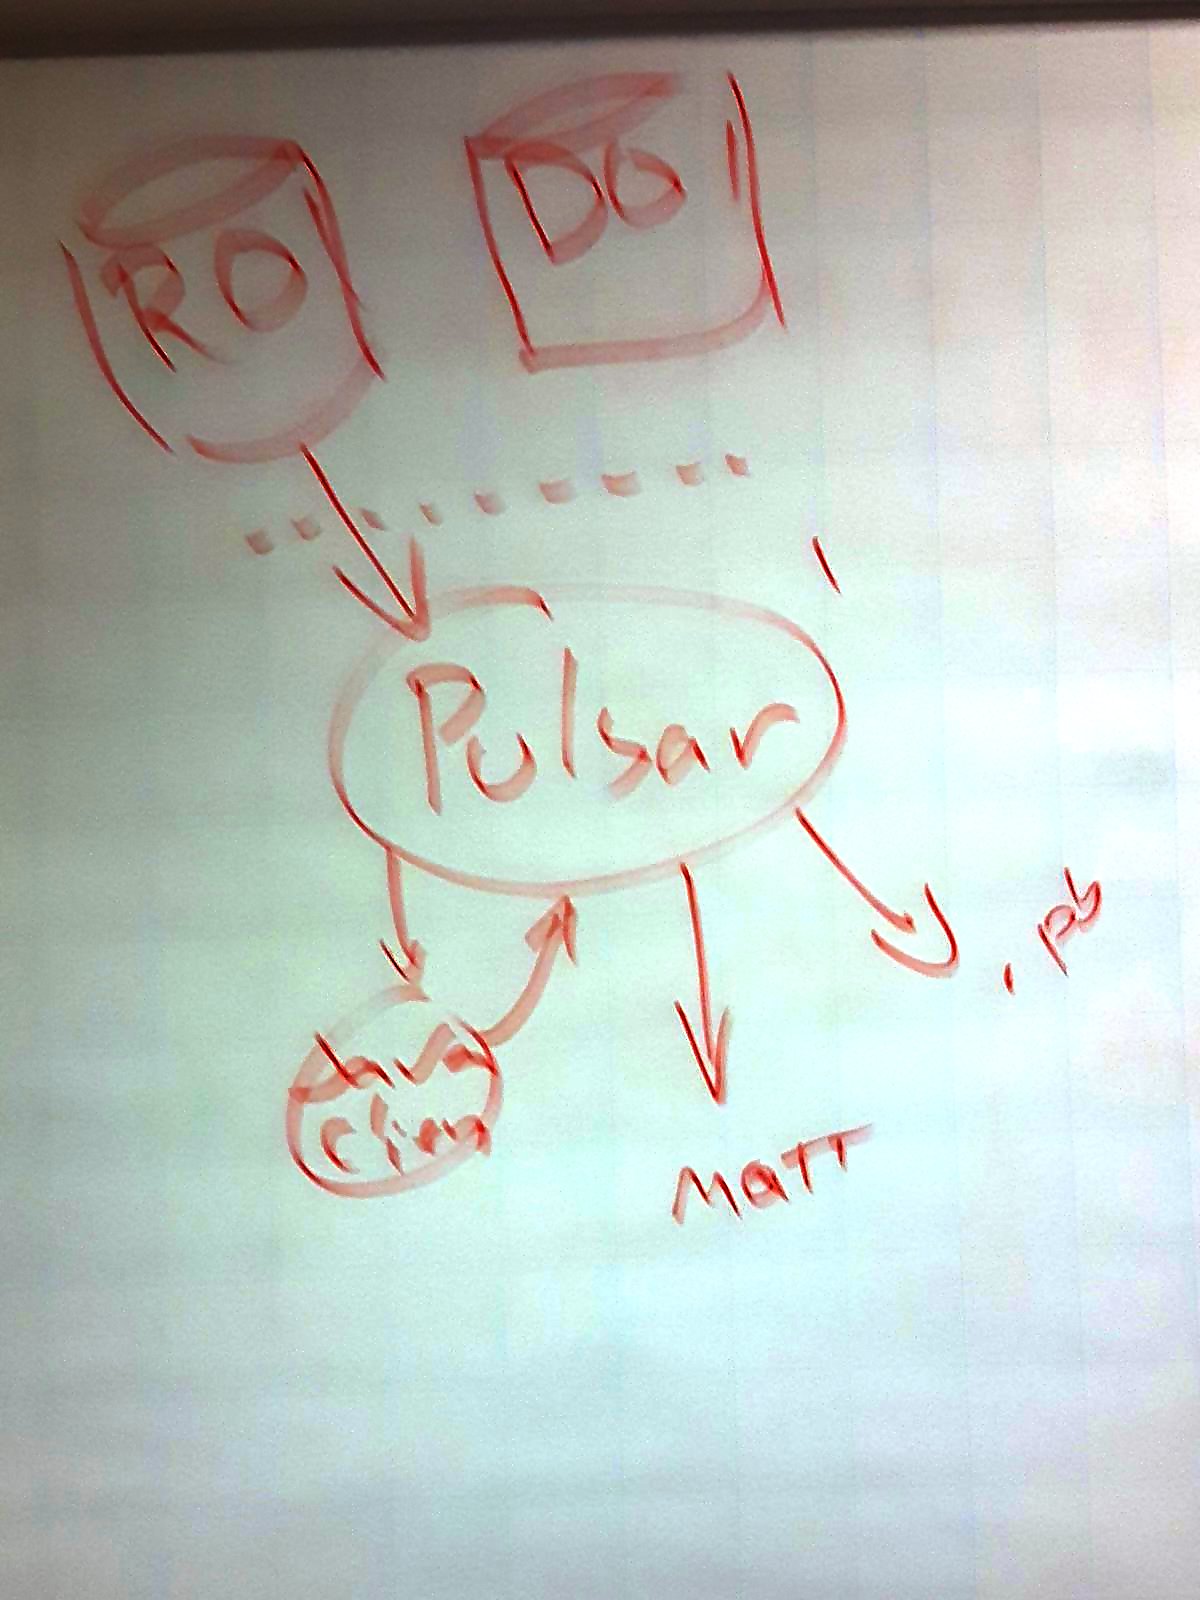 RO
DO
Pulsar
.pb
Java
Clien
MATT